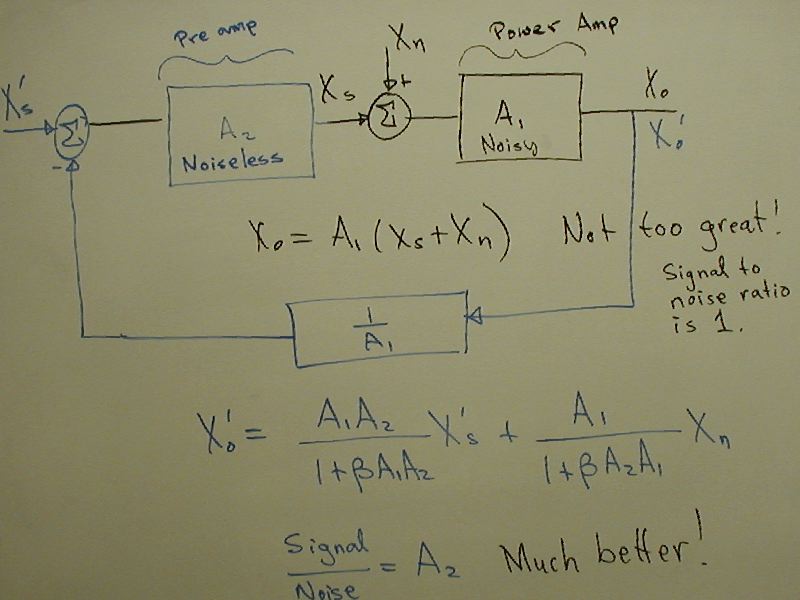 Pre amp
Xn
Power Amp
X's
Σ
-
A2
Noiseless
Xs
+
Σ
A1
Noisy
Xo
X'o
Xo = A1 (Xs + Xn) Not too great!
Signal to
noise ratio
is 1.
1/A1
X'o = A1A2/(1+βA1A2) X's + A1/(1+βA2A1) Xn
Signal/Noise = A2 Much better!